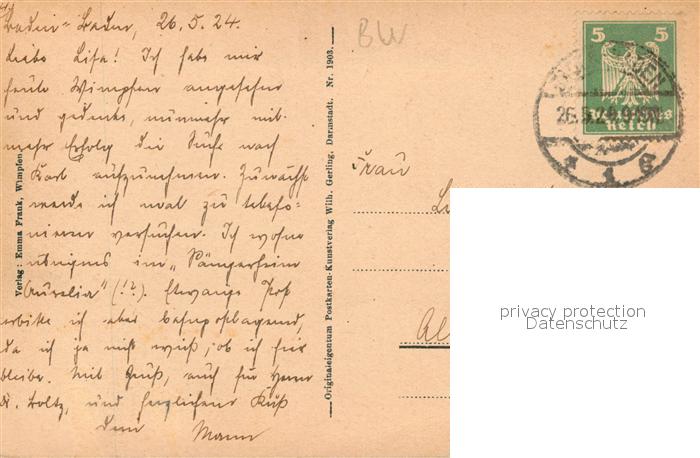 Baden-Baden, 26.5.24.
Liebe Lisa! Ich habe mir
heute Wimpfen angesehen
und gedenke, nunmehr mit
mehr Erfolg die Suche nach
Karl aufzunehmen. Zunächst
werde ich mal zu telefo-
nieren versuchen. Ich wohne
übrigens im „Sängerheim
Aurelia" (!?). Etwaige Post
erbitte ich aber bahnpostlagernd,
da ich ja nicht weiß, ob ich hier
bleibe. Mit Gruß, auch für Herrn
u. Boltz, und herzlichem Kuß
Dein Mann
Verlag: Emma Frank, Wimpfen
Originaleigentum Postkarten-Kunstverlag Wilh. Gerling, Darmstadt. Nr. 1903.
BW
5 5
Deutsches
Reich
26.5.24
Frau
privacy protection
Datenschutz